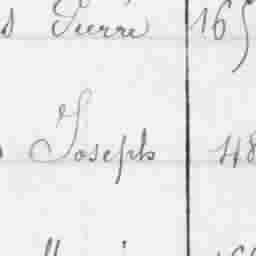 Pierre 165
Joseph 48